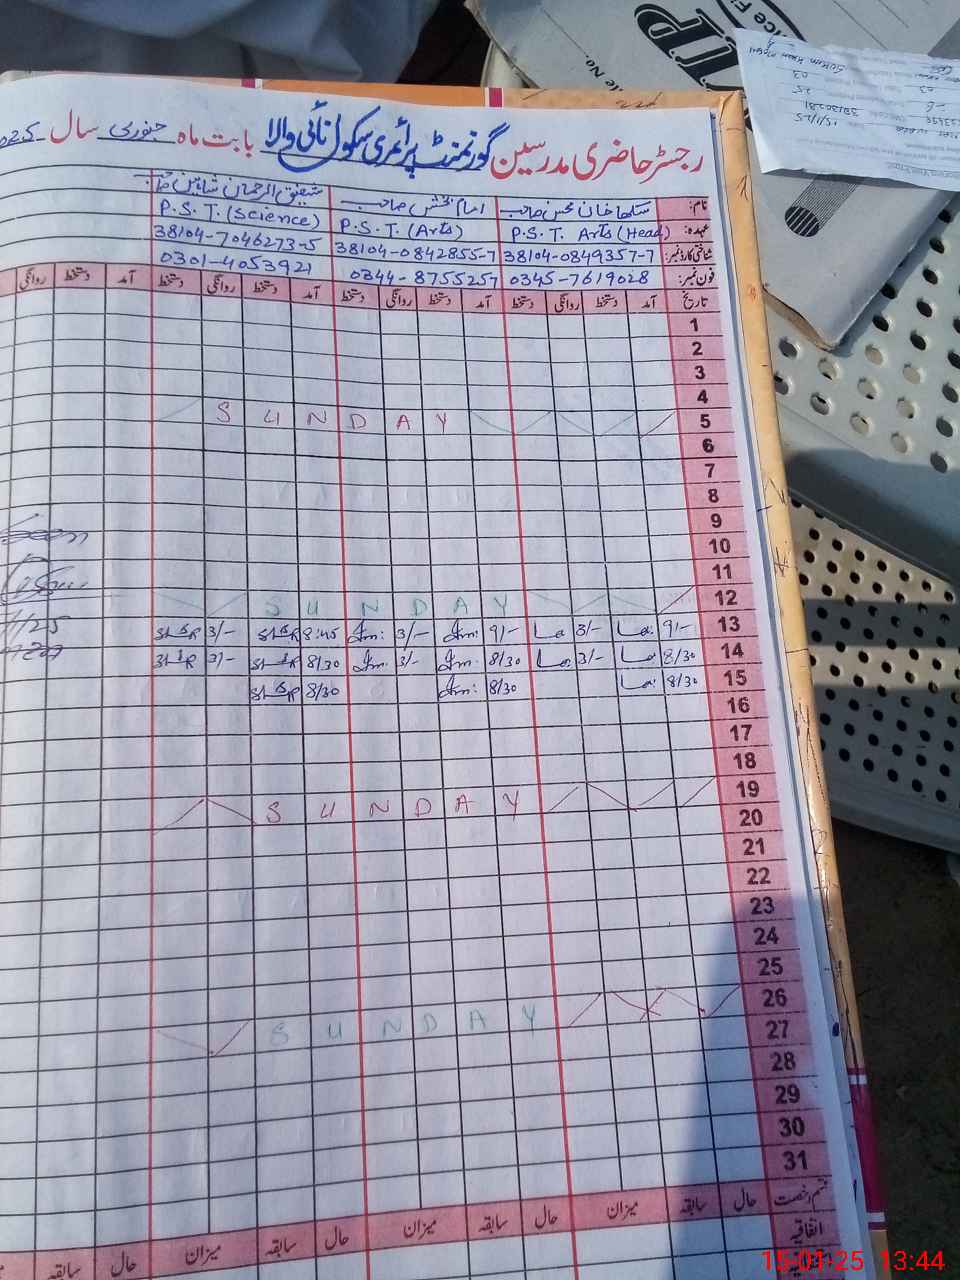 رجسٹر حاضری مدرسین گورنمنٹ پرائمری سکول نائی والا بابت ماہ جنوری سال 025
نام: سکھا خان محسن صاحب امام بخش صاحب شفیق الرحمان شاہین
عہدہ: P.S.T. Arts (Head) P.S.T. (Arts) P.S.T. (Science)
شناختی کارڈ نمبر: 38104-0849357-7 38104-0842855-7 38104-7046273-5
فون نمبر: 0345-7619028 0344-8755257 0301-4053921
تاریخ آمد دستخط روانگی دستخط آمد دستخط روانگی دستخط آمد دستخط روانگی دستخط آمد دستخط روانگی
1
2
3
4
5 SUNDAY
6
7
8
9
10
11
12 SUNDAY
13 9/- 3/- 9/- 3/- 8:45 3/-
14 8/30 3/- 8/30 3/- 8/30 3/-
15 8/30 8/30 8/30
16
17
18
19 SUNDAY
20
21
22
23
24
25
26 SUNDAY
27
28
29
30
31
قسم رخصت حال سابقہ میزان حال سابقہ میزان حال سابقہ میزان حال سابقہ
اتفاقیہ
15-01-25 13:44